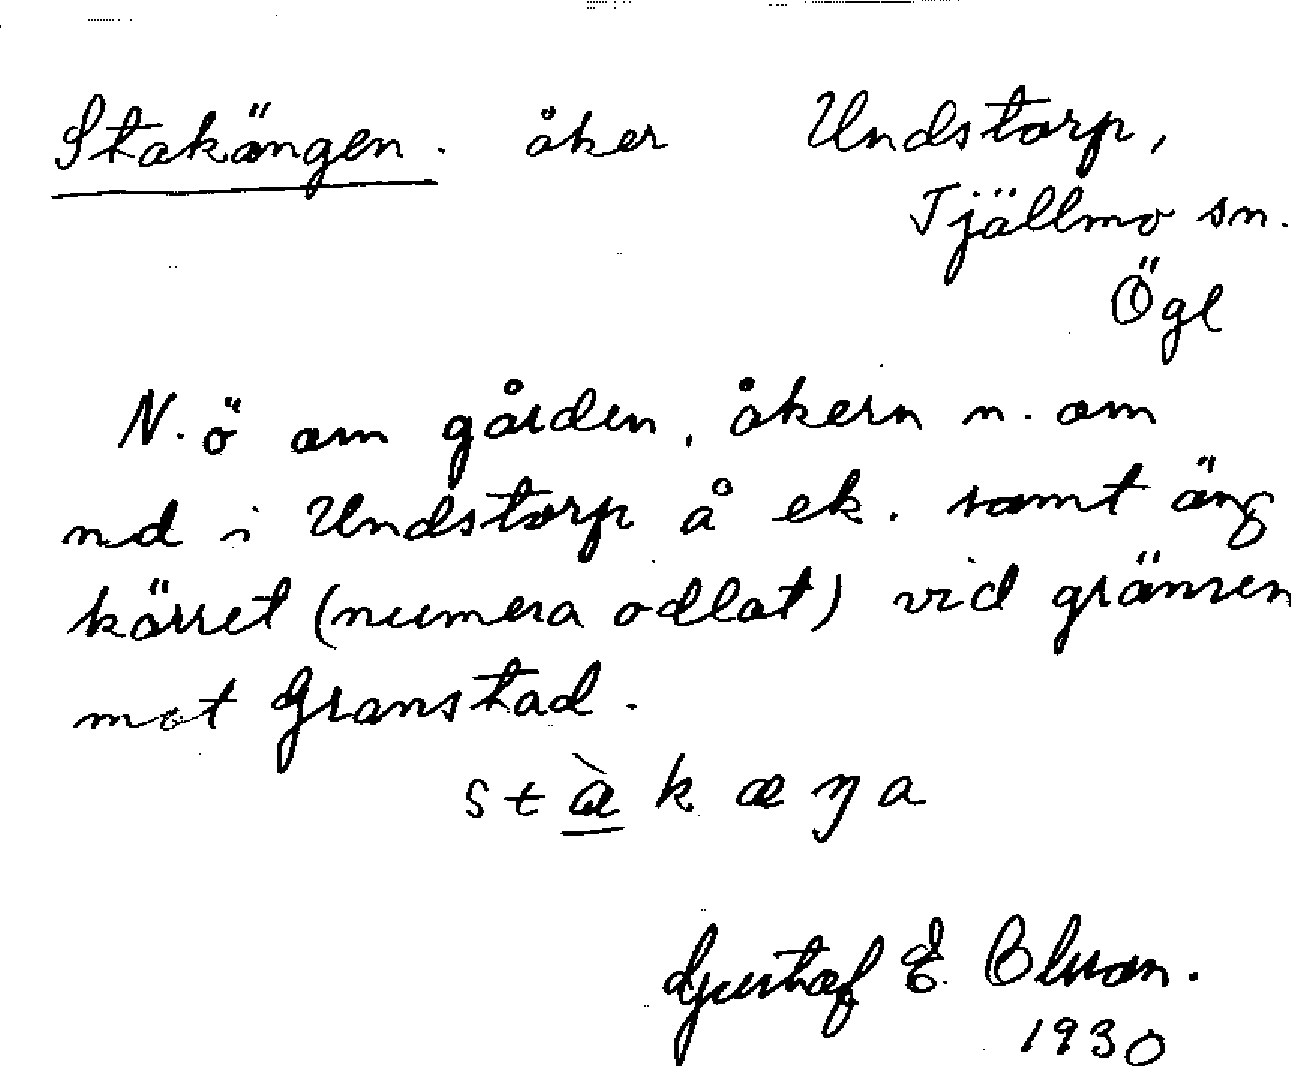 Stakängen. åker Undstorp,
Tjällmo sn.
Ögl
N. ö om gården, åkern n. om
nd i Undstorp å ek. samt äng
kärret (numera odlat) vid gränsen
mot Granstad.
s t à k æ ŋ a
Gustaf E. Olson.
1930